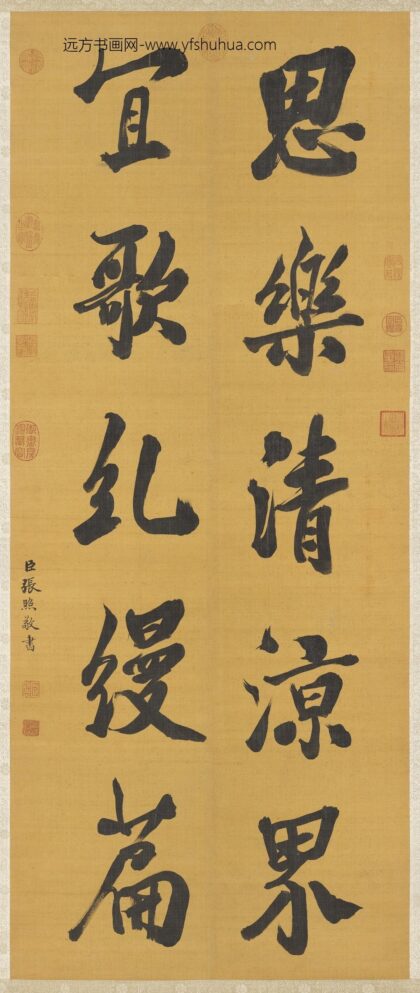 远方书画网-www.yfshuhua.com
思樂清涼界
宜歌糺縵篇
臣張照敬書